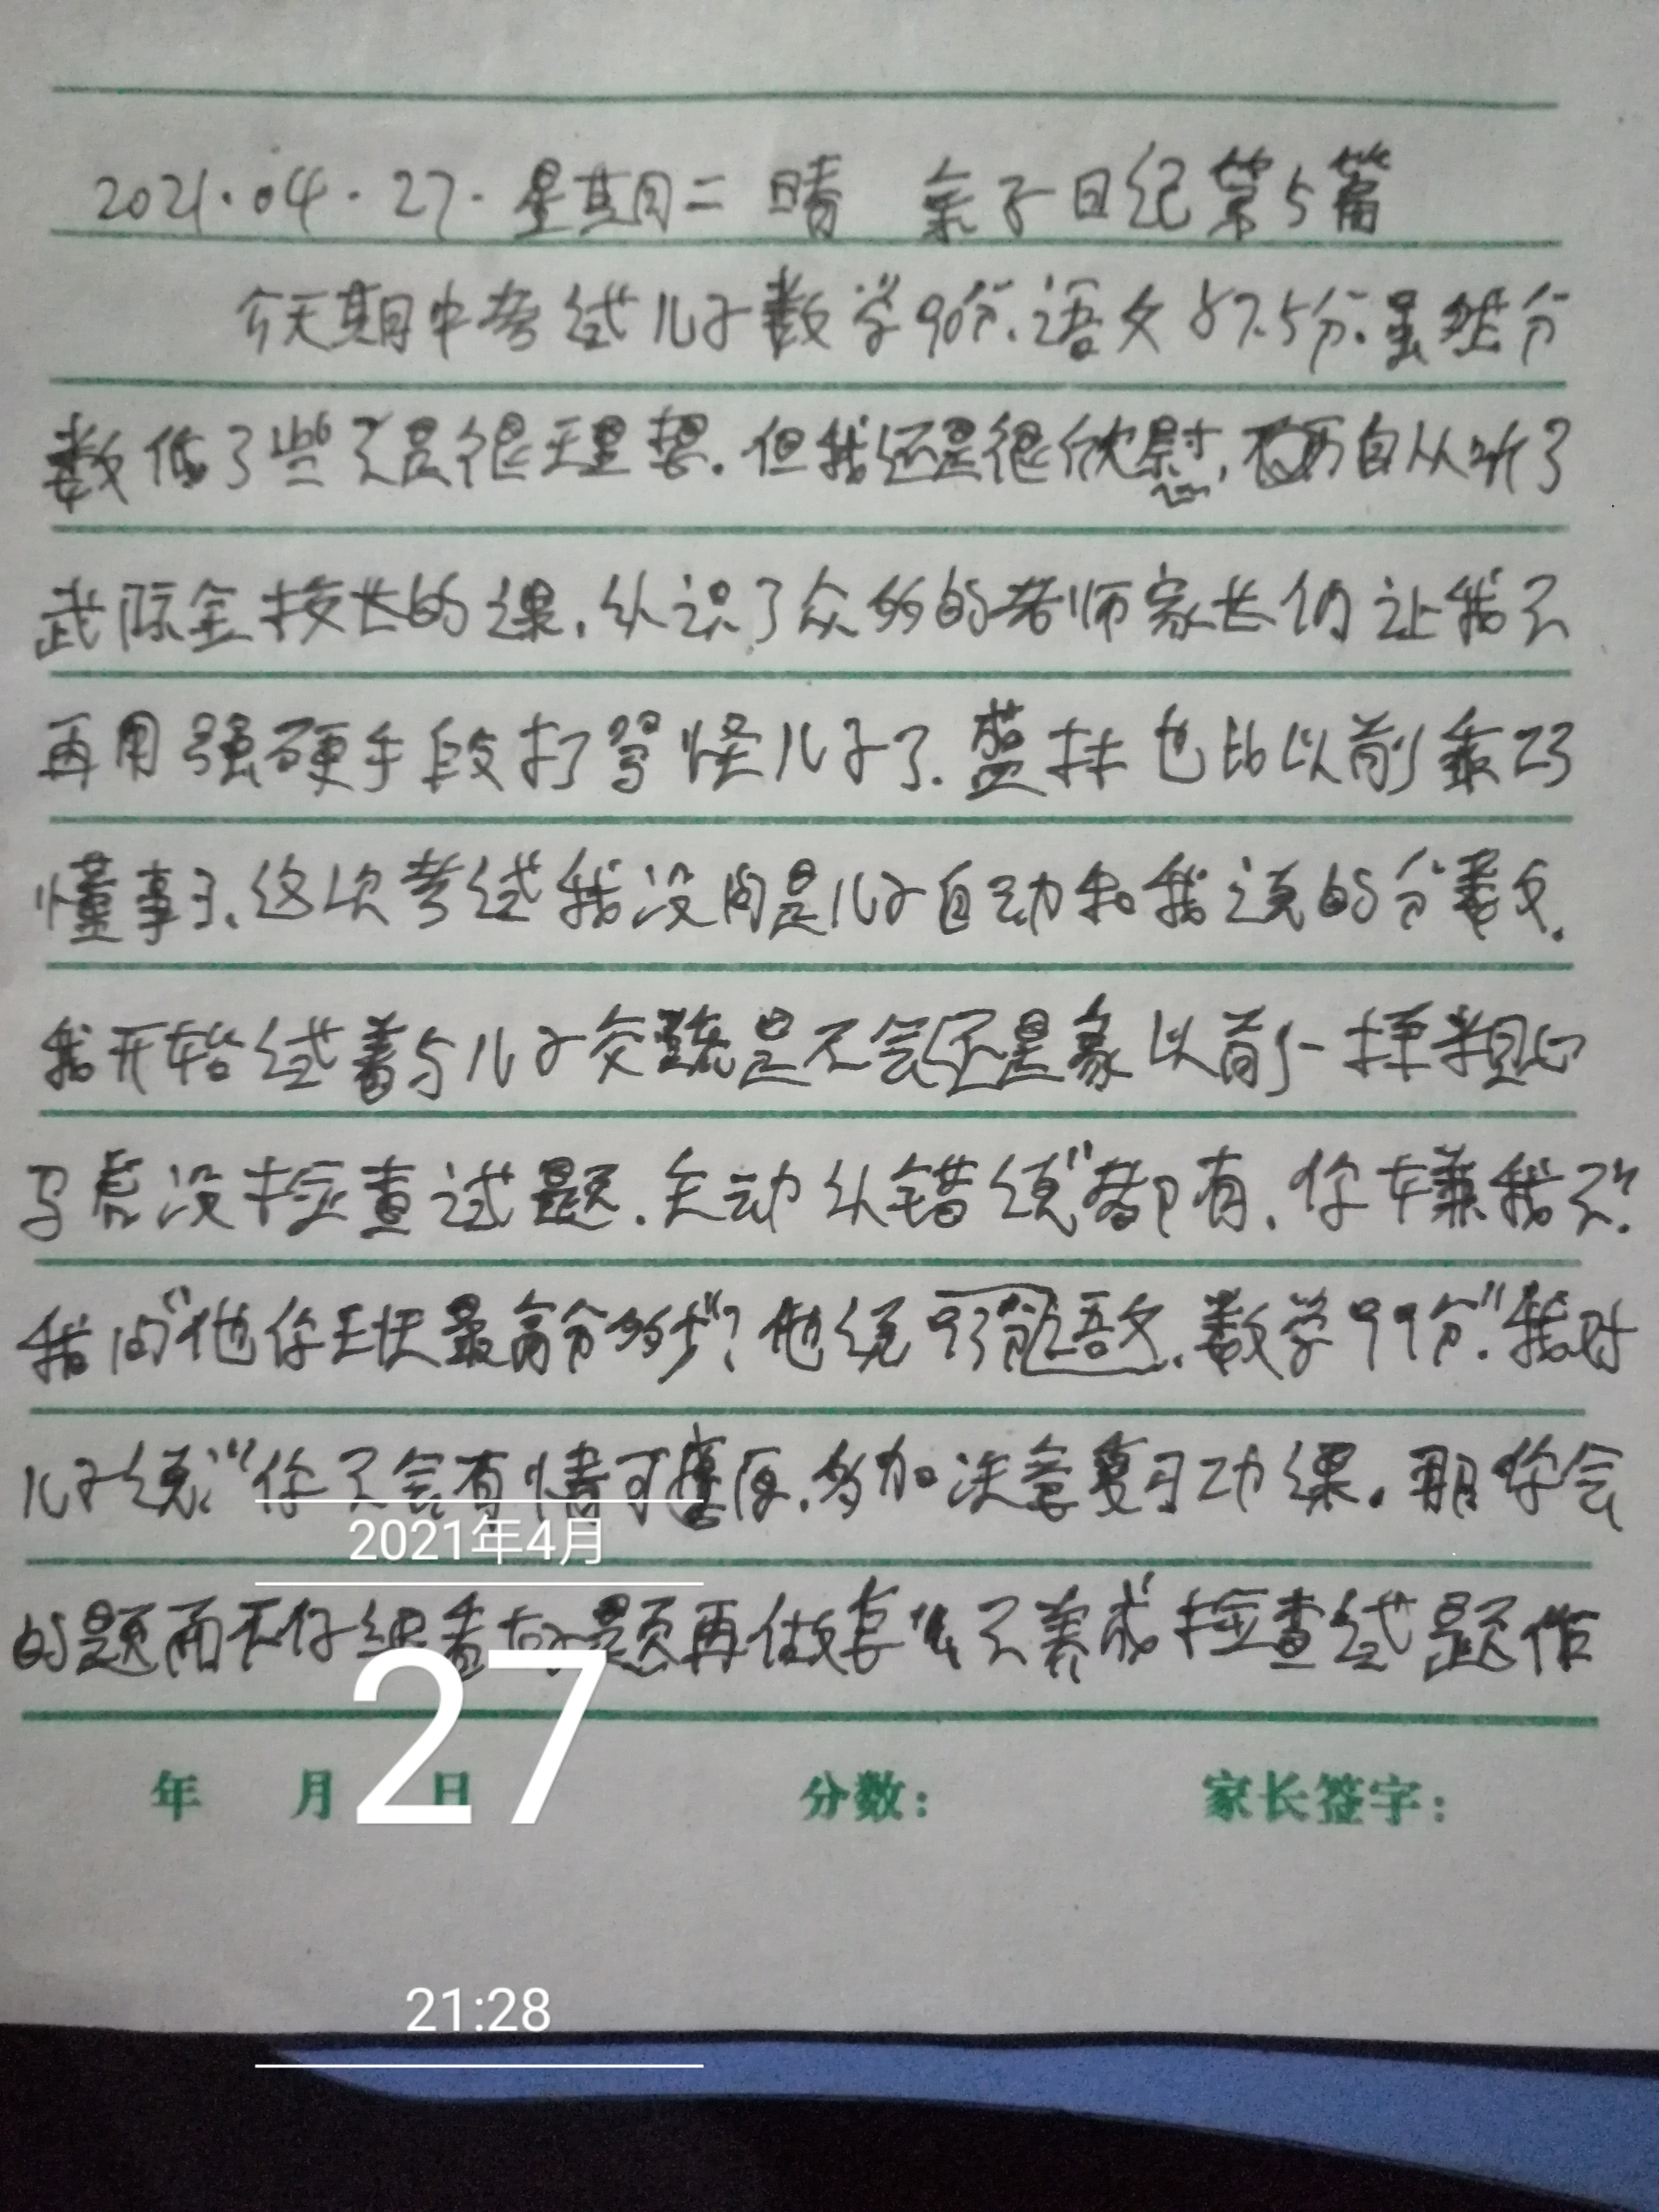 2021.04.27.星期二 晴 亲子日纪第5篇
今天期中考试儿子数学90分.语文87.5分.虽然分
数低了些不是很理想.但我还是很欣慰,自从听了
武际金校长的课,认识了众多的老师家长们让我不
再用强硬手段打骂怪儿子了.蓝林也比以前乖巧
懂事了.这次考试我没问是儿子自动和我说的分数.
我开始试着与儿子交流是不会还是象以前一样粗心
马虎没检查试题.主动认错说"都有.你嫌我不".
我问"他你班最高分多少"?他说93分语文.数学99分".我对
儿子说:"你不会有情可原.多加决意复习功课.那你会
的题而不仔细看好题再做卷 不养成检查试题作
年 月 日 分数: 家长签字:
2021年4月
27
21:28